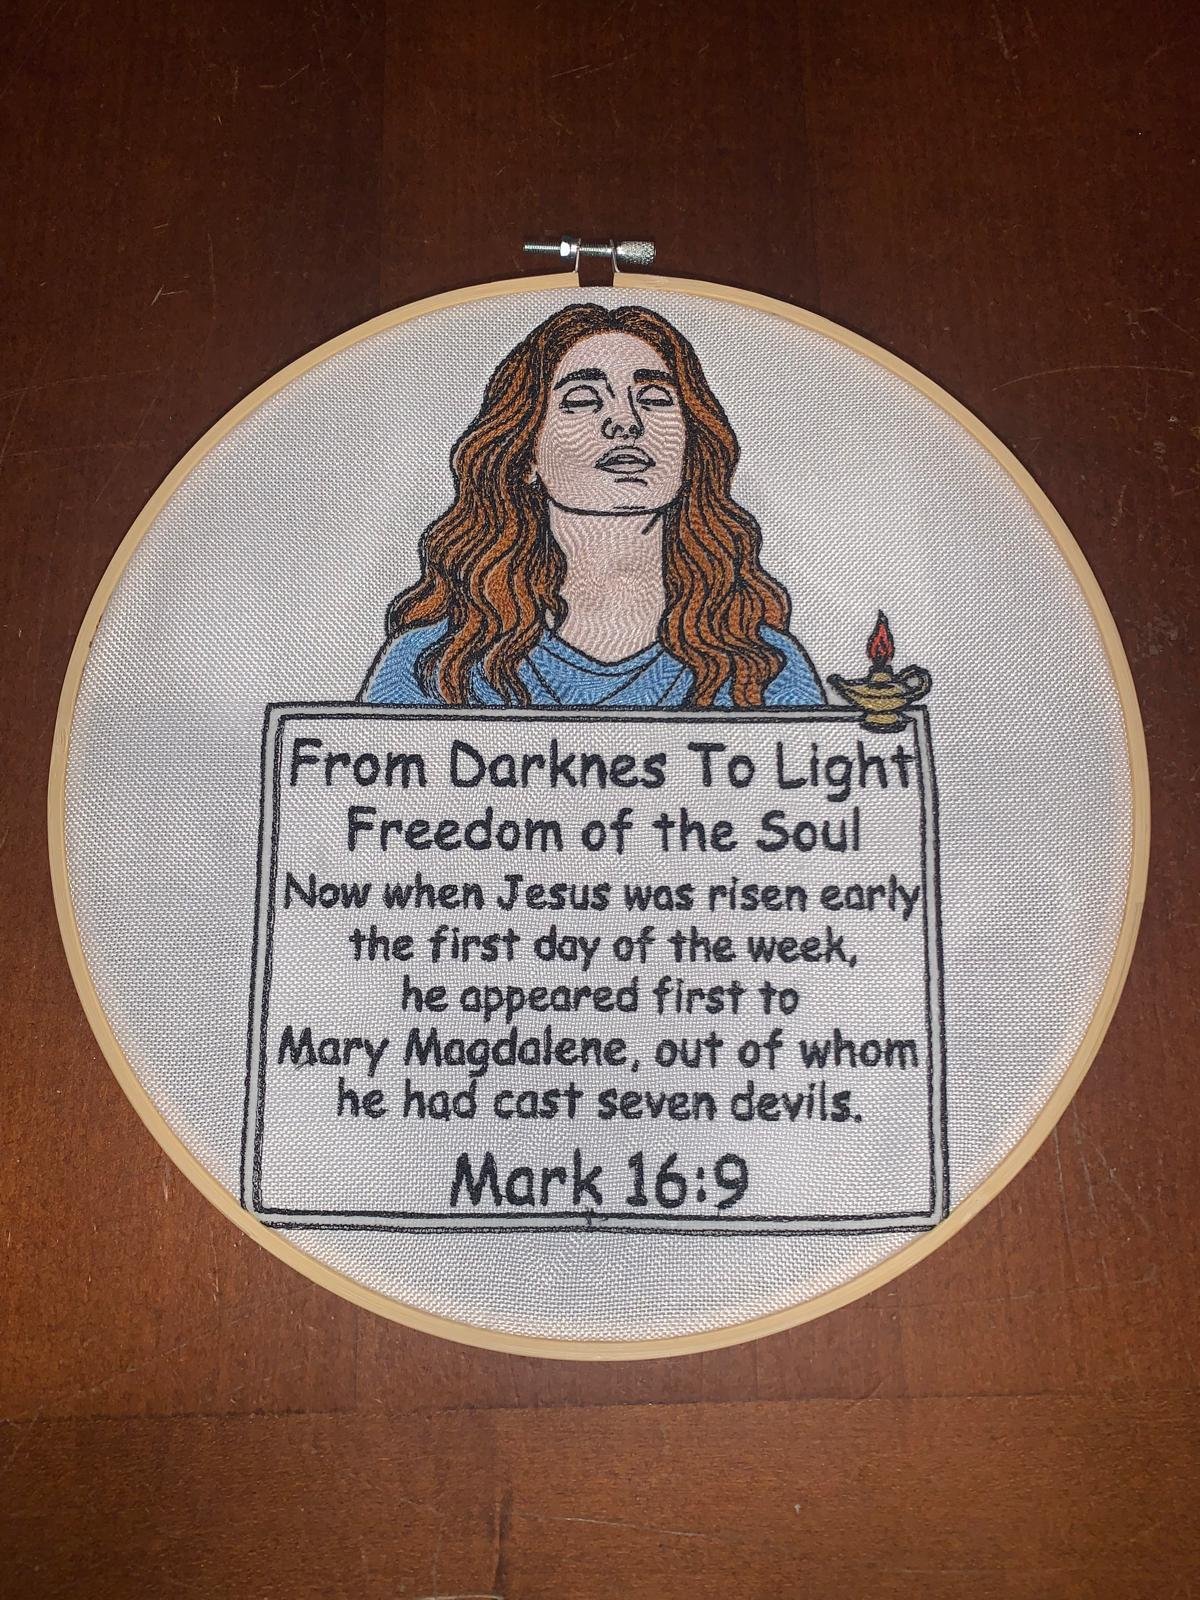 From Darknes To Light
Freedom of the Soul
Now when Jesus was risen early
the first day of the week,
he appeared first to
Mary Magdalene, out of whom
he had cast seven devils.
Mark 16:9